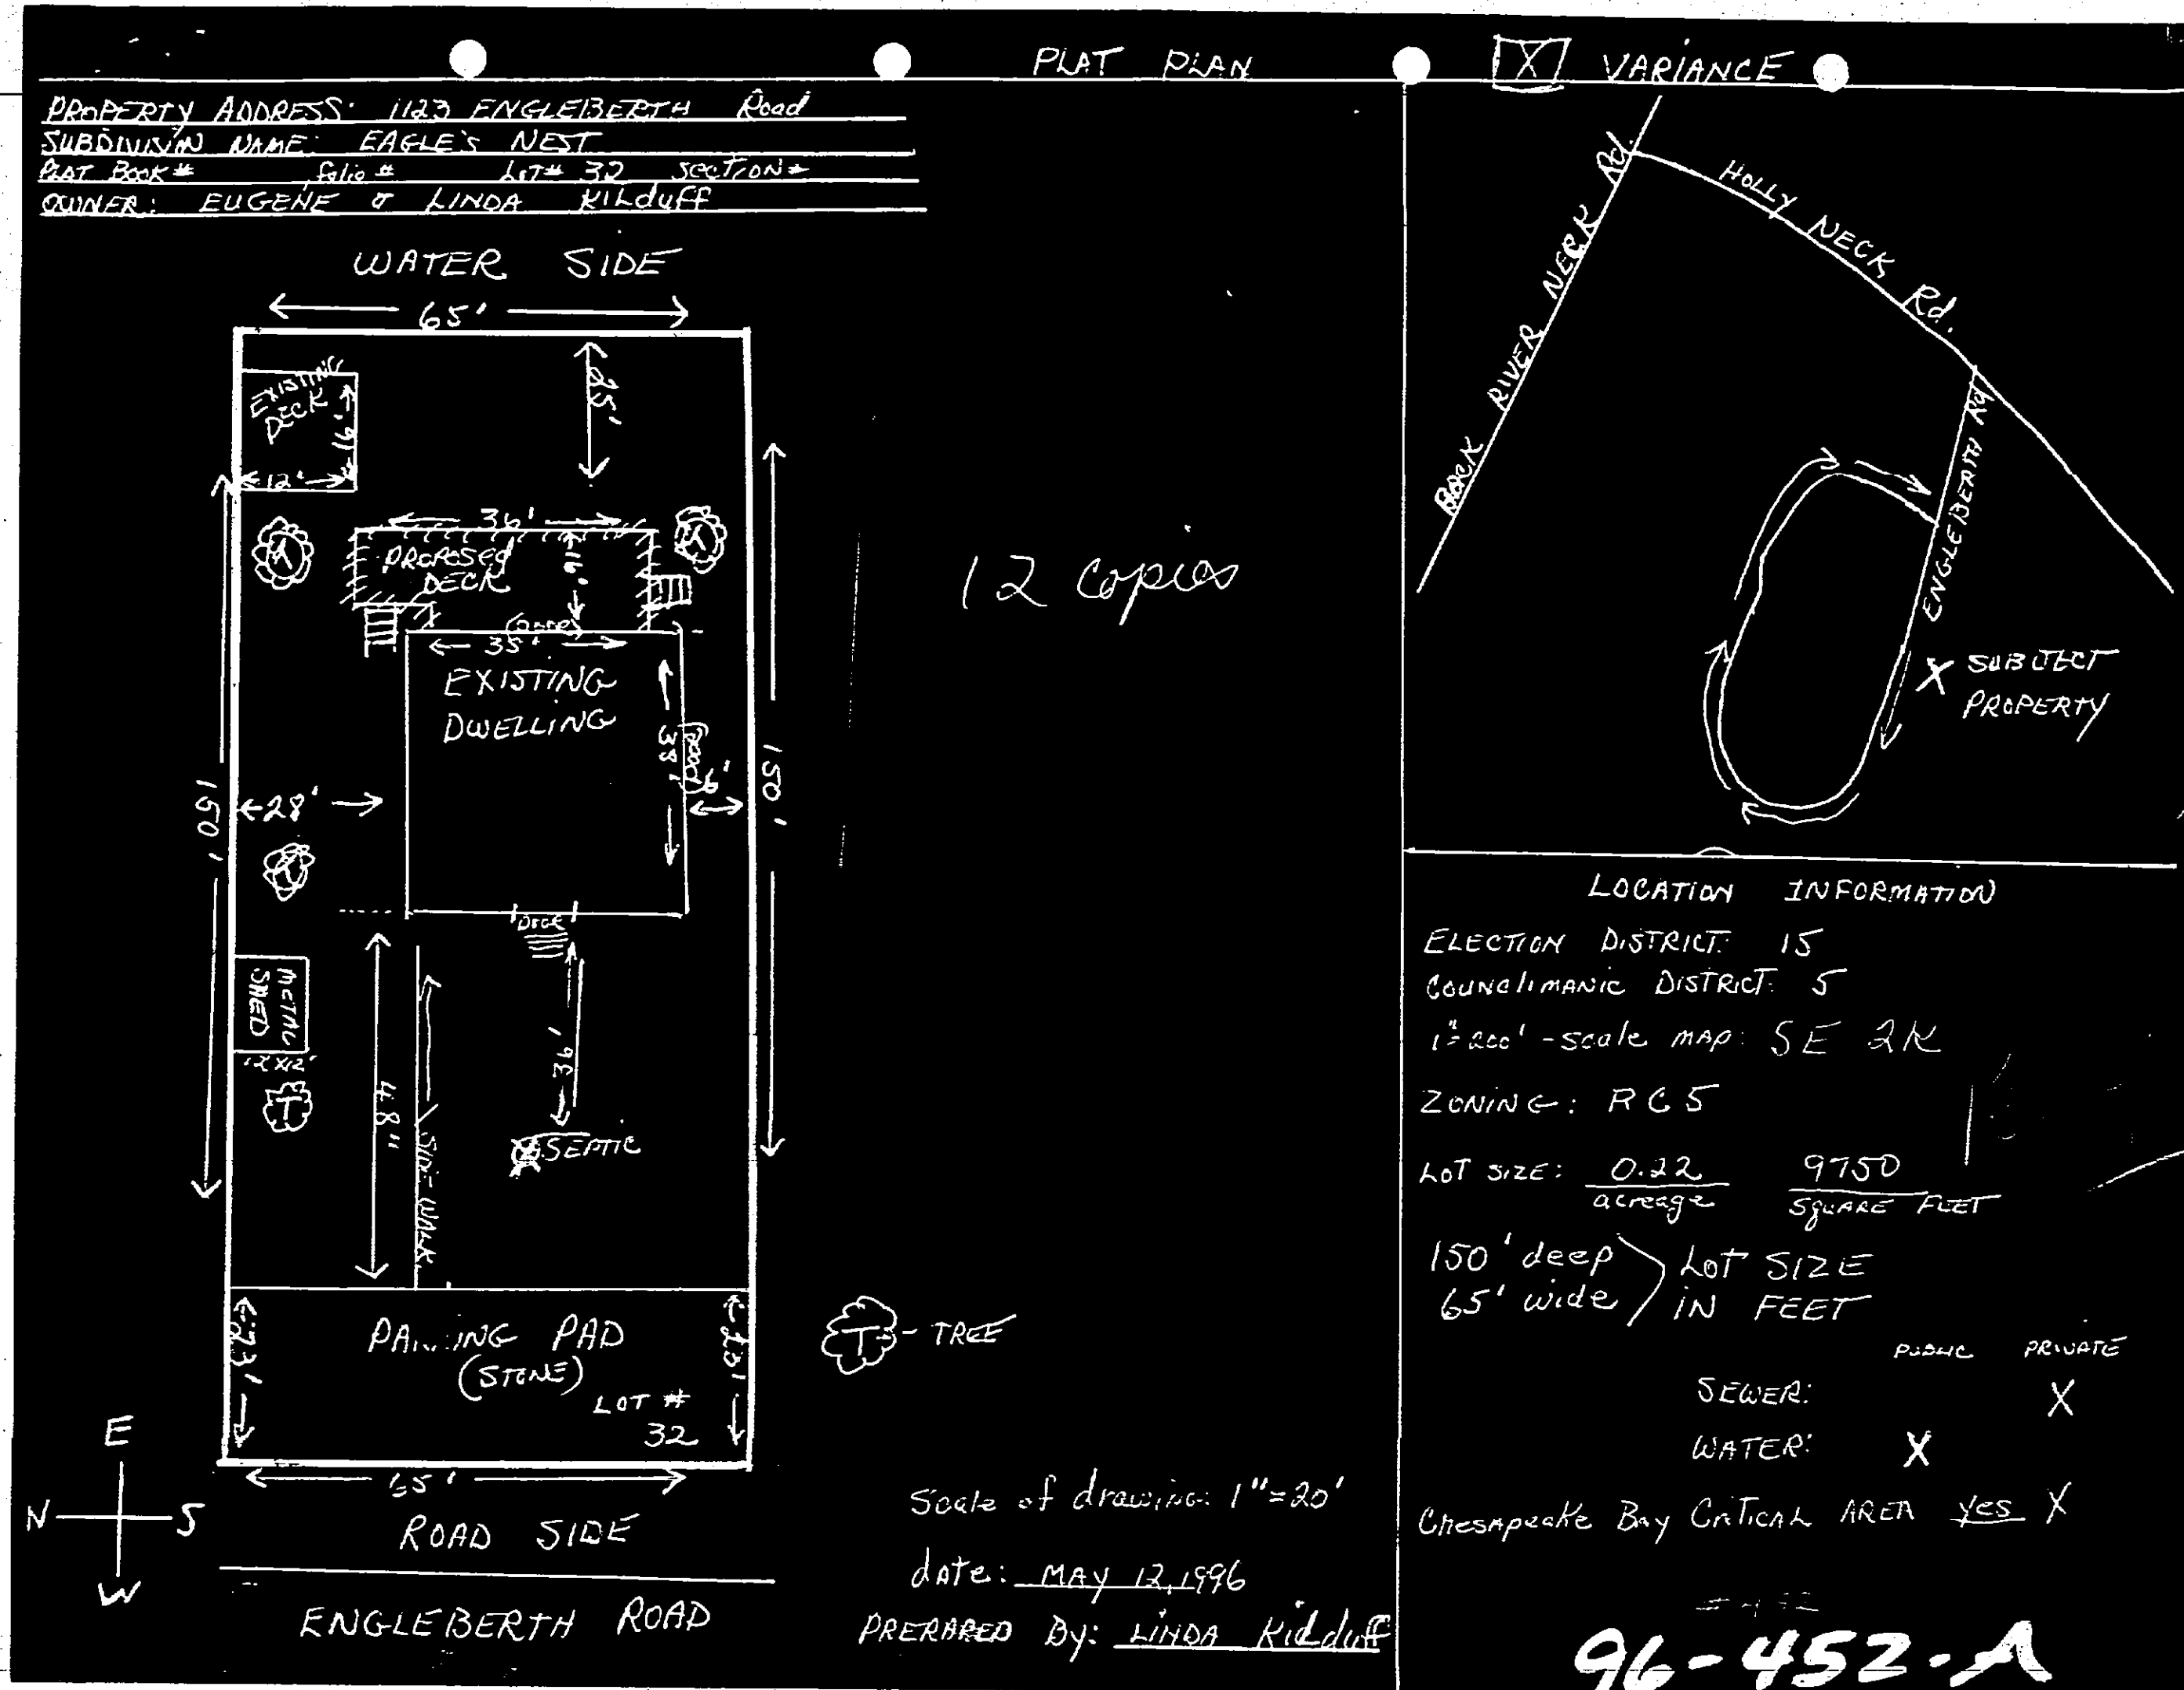 PLAT PLAN
X VARIANCE
PROPERTY ADDRESS: 1123 ENGLEBERTH Road
SUBDIVISIN NAME: EAGLE'S NEST
PLAT BOOK # folio # LOT # 32 SECTION #
OWNER: EUGENE & LINDA KILduFF
WATER SIDE
65'
EXISTING
DECK
16'
12'
25'
36'
PROPOSED
DECK
35'
EXISTING
DWELLING
38'
6'
150'
150'
28'
DOOR
METAL
SHED
12'X12'
T
48"
SIDE WALK
36'
SEPTIC
23'
23'
PARKING PAD
(STONE)
LOT #
32
65'
ROAD SIDE
ENGLEBERTH ROAD
E
N S
W
12 copies
T - TREE
Scale of drawing: 1"=20'
date: MAY 12, 1996
PRERARED By: LINDA Kilduff
BACK RIVER NECK Rd.
HOLLY NECK Rd.
ENGLEBERTH Rd
X SUBJECT
PROPERTY
LOCATION INFORMATION
ELECTION DISTRICT: 15
COUNCLIMANIC DISTRICT: 5
1"=200' - scale MAP: SE 2K
ZONING: RC5
LOT SIZE: 0.22 9750
acreage SQUARE FEET
150' deep LOT SIZE
65' wide IN FEET
PUBLIC PRIVATE
SEWER: X
WATER: X
CHESAPEAKE BAY CRITICAL AREA yes X
96-452-A